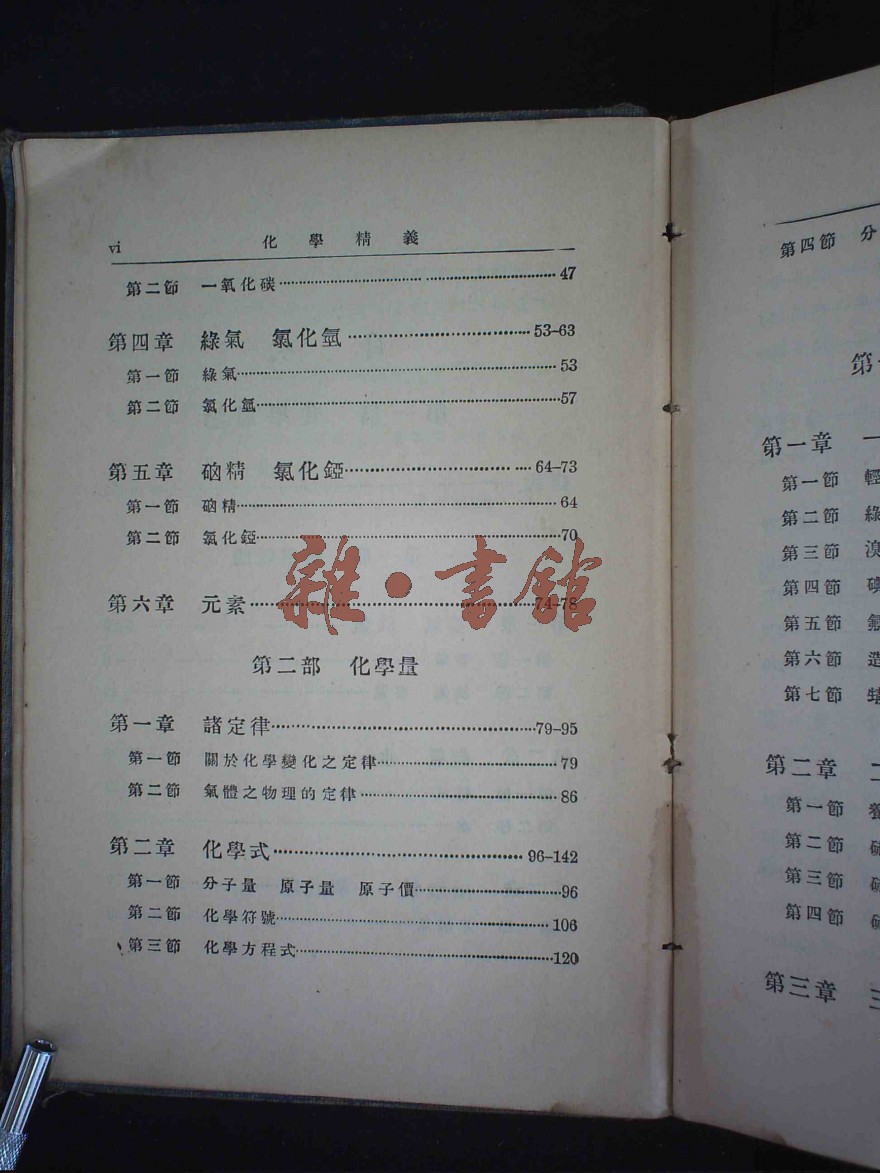 vi 化學精義
第二節 一氧化碳 47
第四章 綠氣 氯化氫 53-63
第一節 綠氣 53
第二節 氯化氫 57
第五章 硇精 氯化錏 64-73
第一節 硇精 64
第二節 氯化錏 70
第六章 元素 74-78
第二部 化學量
第一章 諸定律 79-95
第一節 關於化學變化之定律 79
第二節 氣體之物理的定律 86
第二章 化學式 96-142
第一節 分子量 原子量 原子價 96
第二節 化學符號 106
第三節 化學方程式 120
雜·書館
第四節 分
第
第一章 一
第一節 輕
第二節 綠
第三節 溴
第四節 碘
第五節
第六節 造
第七節
第二章 二
第一節 養
第二節 硫
第三節 硫
第四節 硫
第三章 三